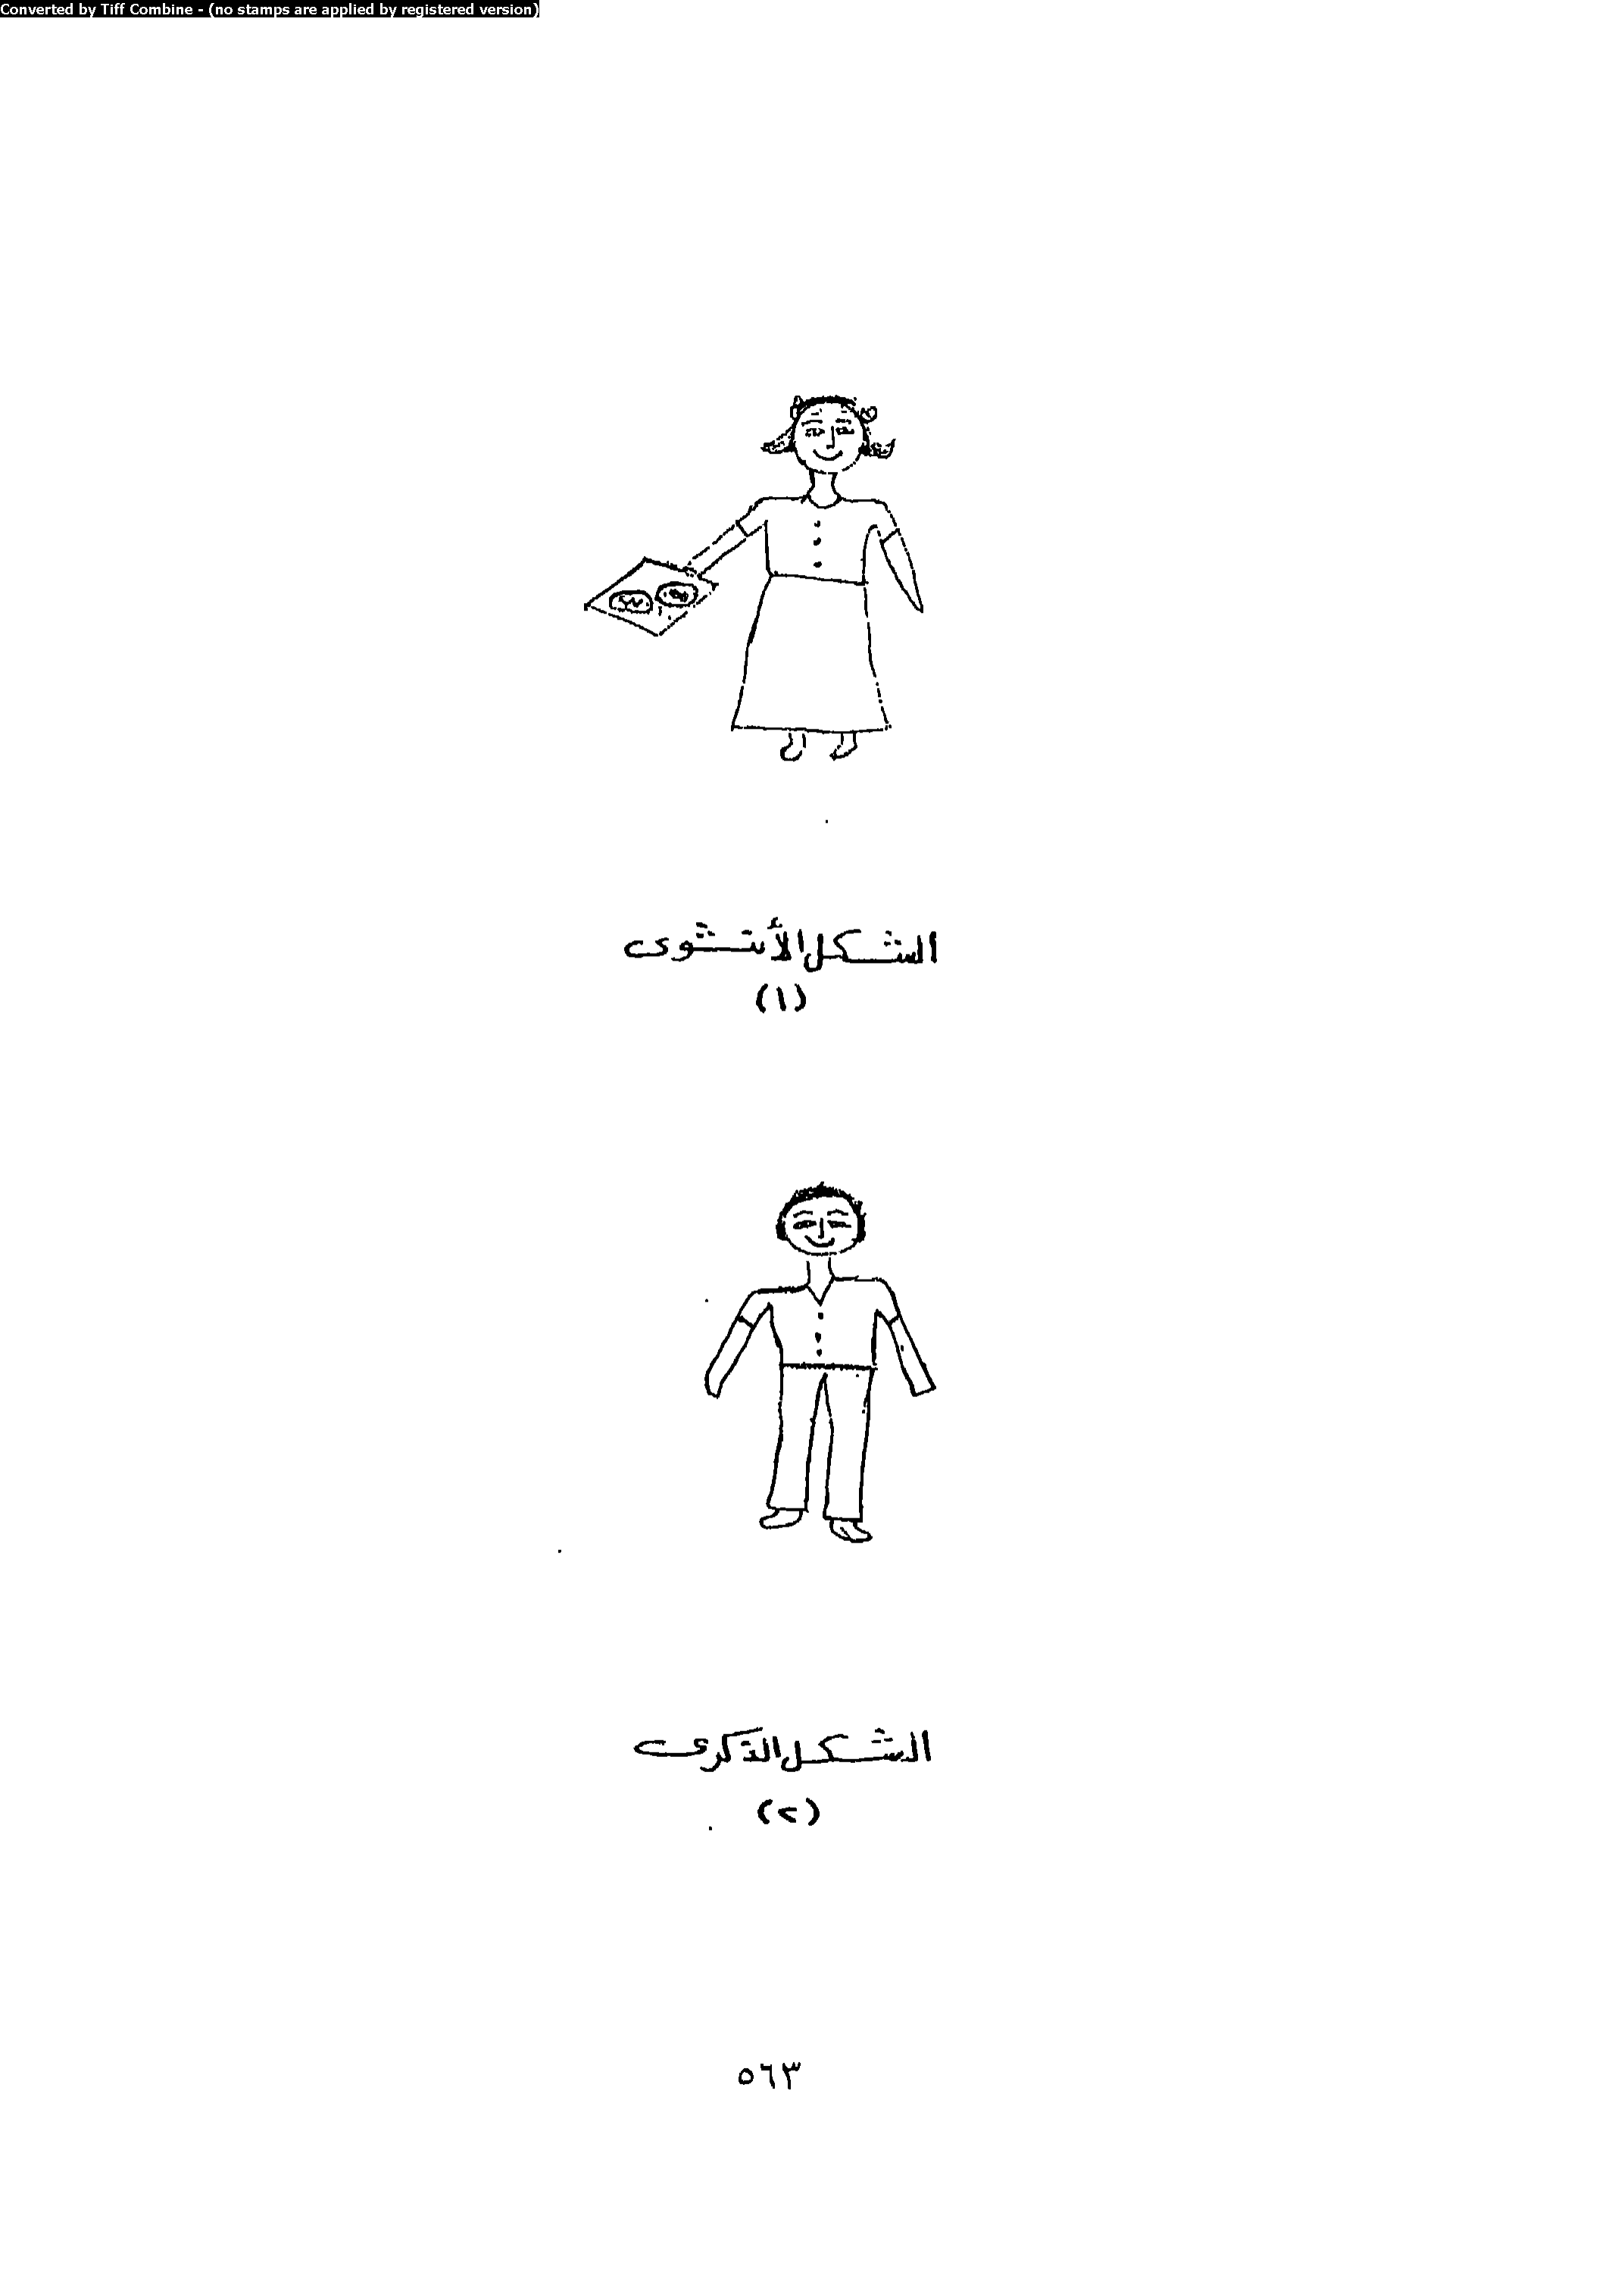 Converted by Tiff Combine - (no stamps are applied by registered version)
الشكل الأنثوى
(١)
الشكل الذكرى
(٢)
٥٦٣